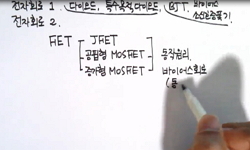 전자회로 1. (다이오드, 특수목적다이오드, BJT, 바이어스
전자회로 2.
FET - JFET
공핍형 MOSFET - 동작원리.
증가형 MOSFET 바이어스회로
(동